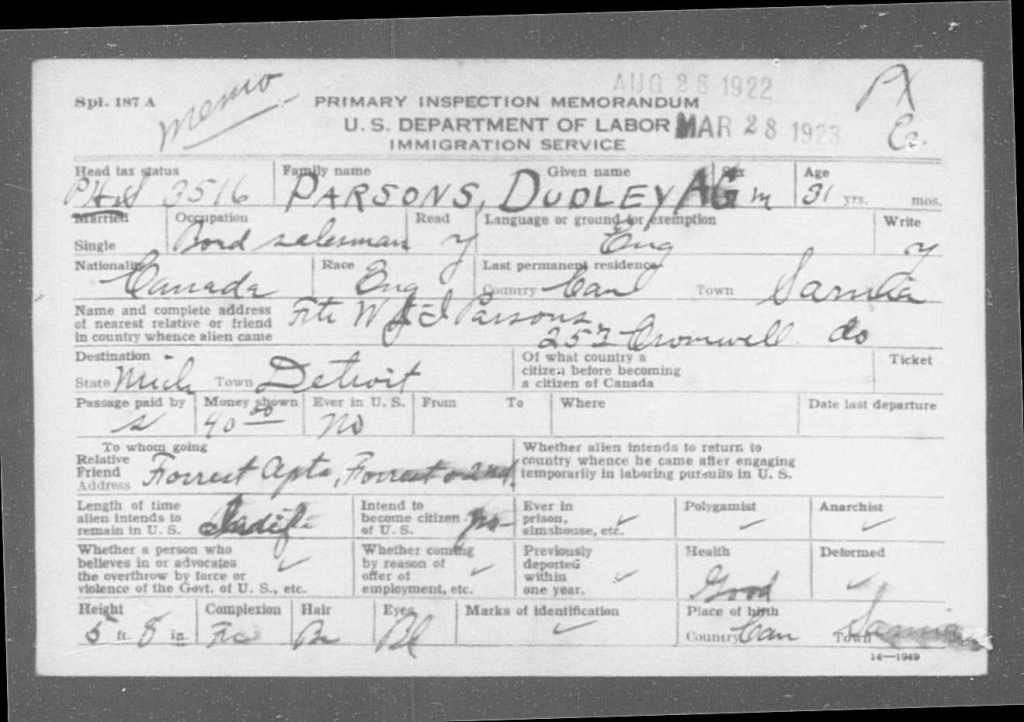 AUG 28 1922
Spl. 187 A memo PRIMARY INSPECTION MEMORANDUM
U. S. DEPARTMENT OF LABOR MAR 28 1923
IMMIGRATION SERVICE
Head tax status Family name Given name Sex Age
3516 PARSONS, DUDLEY AG m 31 yrs. mos.
Married Occupation Read Language or ground for exemption Write
Single Bond salesman y Eng y
Nationality Race Last permanent residence
Canada Eng Country Can Town Sarnia
Name and complete address
of nearest relative or friend
in country whence alien came
Parsons
257 Cromwell do
Destination Of what country a
citizen before becoming
a citizen of Canada Ticket
State Mich Town Detroit
Passage paid by Money shown Ever in U. S. From To Where Date last departure
s 40 00 No
To whom going Whether alien intends to return to
country whence he came after engaging
temporarily in laboring pursuits in U. S.
Relative
Friend
Address Forrest Apts, Forrest & 2nd.
Length of time
alien intends to
remain in U. S. Indef
Intend to
become citizen
of U. S. no
Ever in
prison,
almshouse, etc. ✓
Polygamist ✓
Anarchist ✓
Whether a person who
believes in or advocates
the overthrow by force or
violence of the Govt. of U. S., etc. ✓
Whether coming
by reason of
offer of
employment, etc. ✓
Previously
deported
within
one year. ✓
Health Good
Deformed ✓
Height Complexion Hair Eyes Marks of identification Place of birth
5 ft. 8 in. Fr Br Bl ✓ Country Can Town Sarnia
14—1949